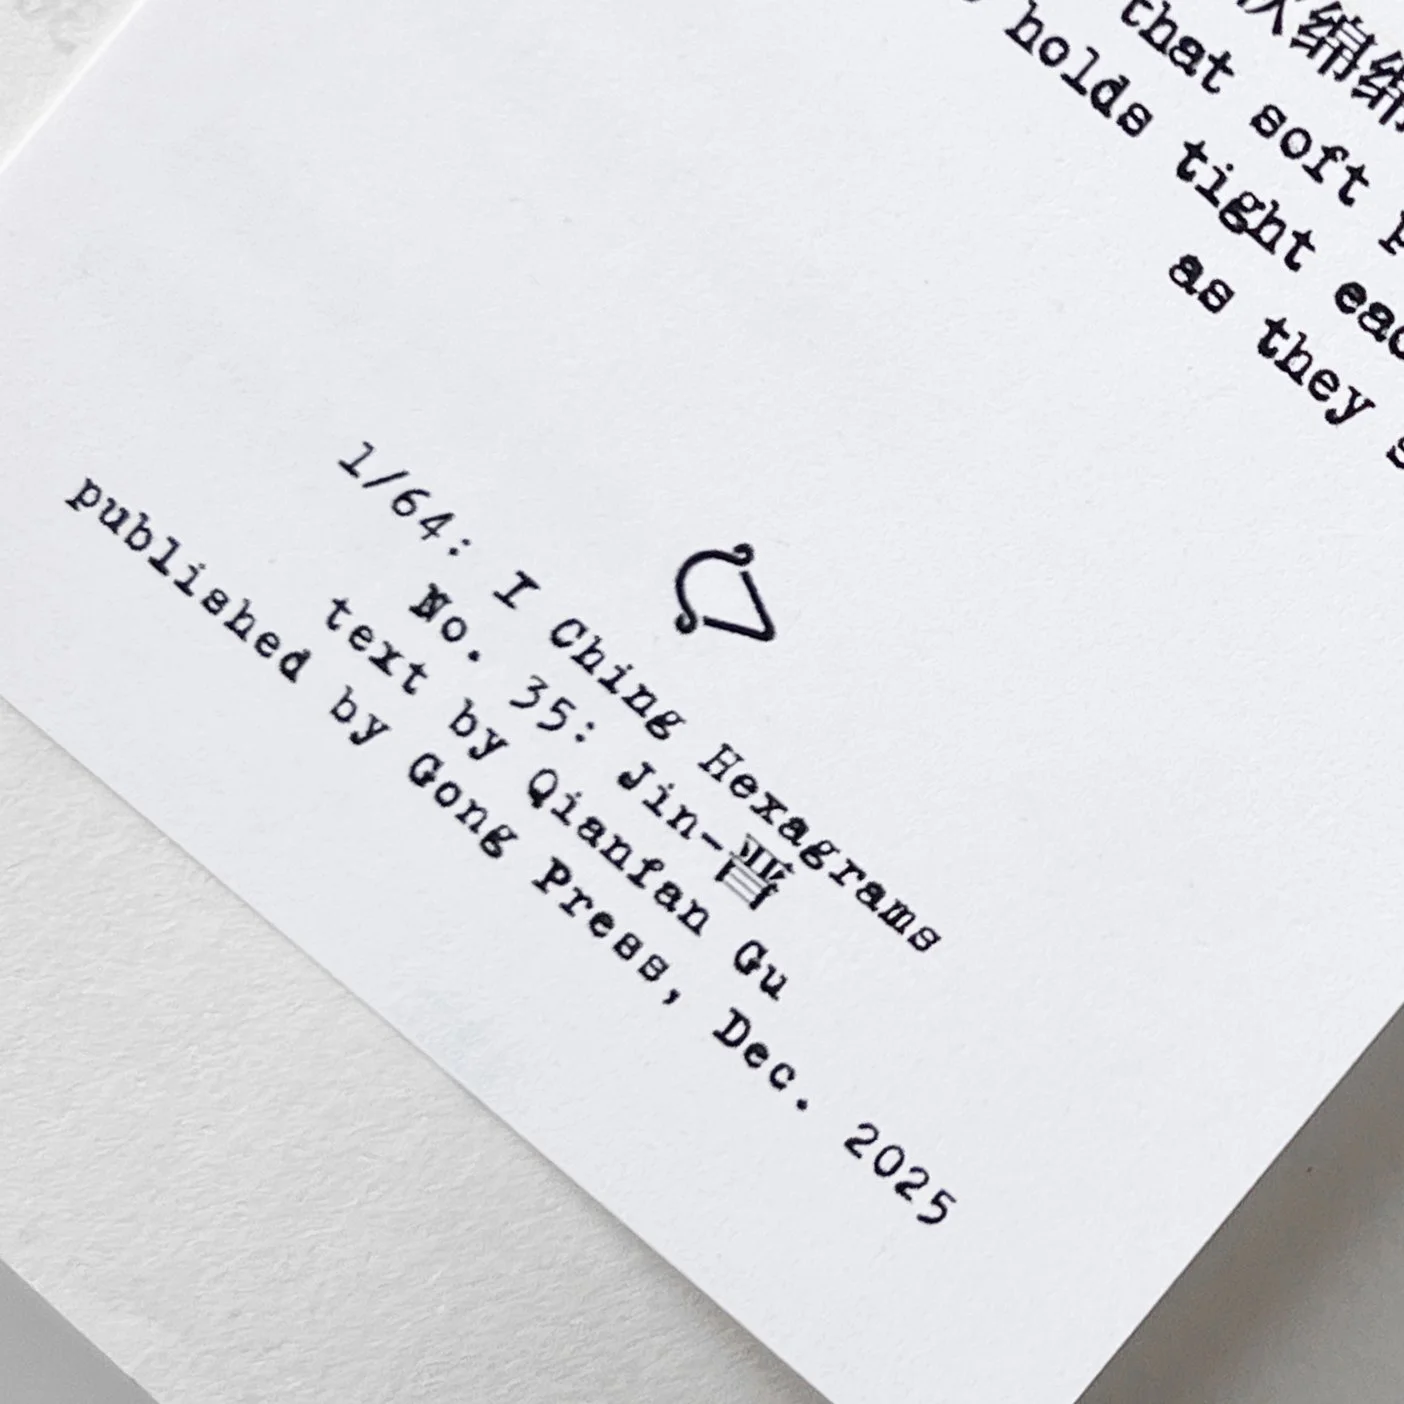 绵绵
that soft
holds tight
as they
1/64: I Ching Hexagrams
No. 35: Jin-晋
text by Qianfan Gu
published by Gong Press, Dec. 2025